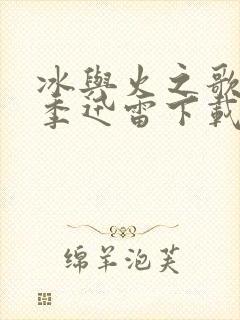 冰與火之歌
季迅雷下載
绵羊泡芙